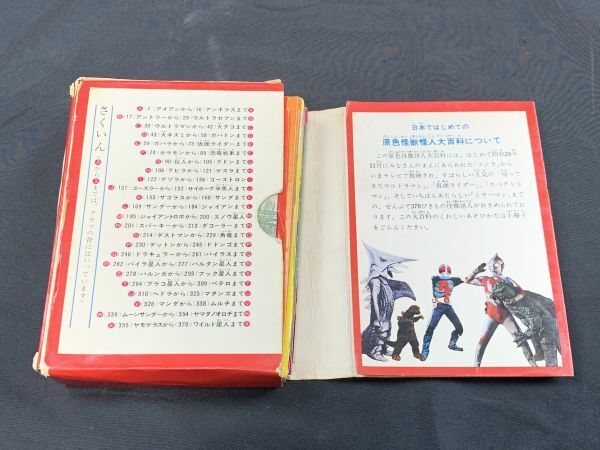 さくいん
ⒶからⓍまでは、グラフの背にはいっています。
Ⓐ 1：アイアンから：16：アンギラスまでⒶ
Ⓑ 17：アントラーから：29：ウルトラセブンまでⒷ
Ⓒ 30：ウルトラマンから：42：大ダコまでⒸ
Ⓓ 43：大ネズミから：58：ガバドンまでⒹ
Ⓔ 59：ガバラから：73：仮面ライダーまでⒺ
Ⓕ 74：ガラモンから：89：恐竜戦車までⒻ
Ⓖ 90：巨人から：105：クドンまでⒼ
Ⓗ 106：クビラから：121：ゲスラまでⒽ
Ⓘ 122：ゲゾラから：136：ゴーストロンまで
Ⓙ 137：ゴースラーから：152：サイボーグ半魚人まで
Ⓚ 153：ザゴラスから：168：サンダまでⓀ
Ⓛ 169：サンダーから：184：シャイアンまでⓁ
Ⓜ 185：ジャイアントロボから：200：ズノウ星人Ⓜ
Ⓝ 201：スパーキーから：213：ダコーラーまでⓃ
Ⓞ 214：ダストマンから：229：典竜までⓄ
Ⓟ 230：デットンから：245：ドドンゴまでⓅ
Ⓠ 246：ドラキュラーから：261：バイラスまでⓆ
Ⓡ 262：バイラ星人から：277：バルタン星人までⓇ
Ⓢ 278：バルンガから：293：ブック星人までⓈ
Ⓣ 294：ブラコ星人から：309：ペテロまでⓉ
Ⓤ 310：ヘドラから：325：マタンゴまでⓊ
Ⓥ 326：マンダから：338：ムルチまでⓋ
Ⓦ 339：ムーンサンダーから：354：ヤマタノオロチまでⓌ
Ⓧ 355：ヤモゲラスから：370：ワイルド星人までⓍ
日本ではじめての
原色怪獣怪人大百科について
この原色怪獣怪人大百科には、はじめて昭和29年
11月にみなさんのまえにあらわれた「ゴジラ」から、
いまテレビで放映され、すばらしい人気の「帰って
きたウルトラマン」、「仮面ライダー」、「スペクトル
マン」、そしていちばんあたらしい「ミラーマン」ま
で、ぜんぶで370ぴきもの怪獣怪人がおさめられてお
ります。この大百科のくわしいあそびかたは小冊子
をごらんください。